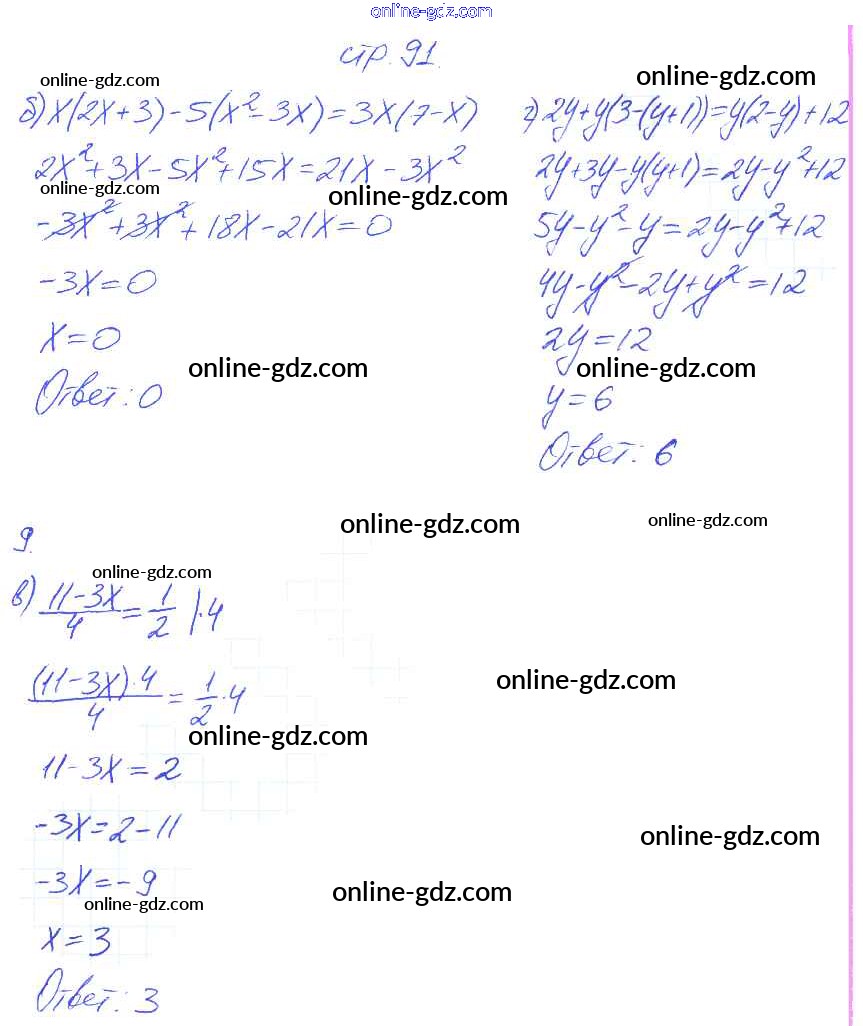 online-gdz.com
стр. 91.
online-gdz.com
online-gdz.com
б) x(2x+3)-5(x²-3x)=3x(7-x)
2x²+3x-5x²+15x=21x-3x²
online-gdz.com
online-gdz.com
-3x²+3x²+18x-21x=0
-3x=0
x=0
online-gdz.com
Ответ: 0
г) 2y+y(3-(y+1))=y(2-y)+12
2y+3y-y(y+1)=2y-y²+12
5y-y²-y=2y-y²+12
4y-y²-2y+y²=12
2y=12
online-gdz.com
y=6
Ответ: 6
online-gdz.com
online-gdz.com
9.
online-gdz.com
в) (11-3x)/4=1/2 |·4
((11-3x)·4)/4=1/2·4
online-gdz.com
online-gdz.com
11-3x=2
-3x=2-11
online-gdz.com
-3x=-9
online-gdz.com
online-gdz.com
x=3
Ответ: 3